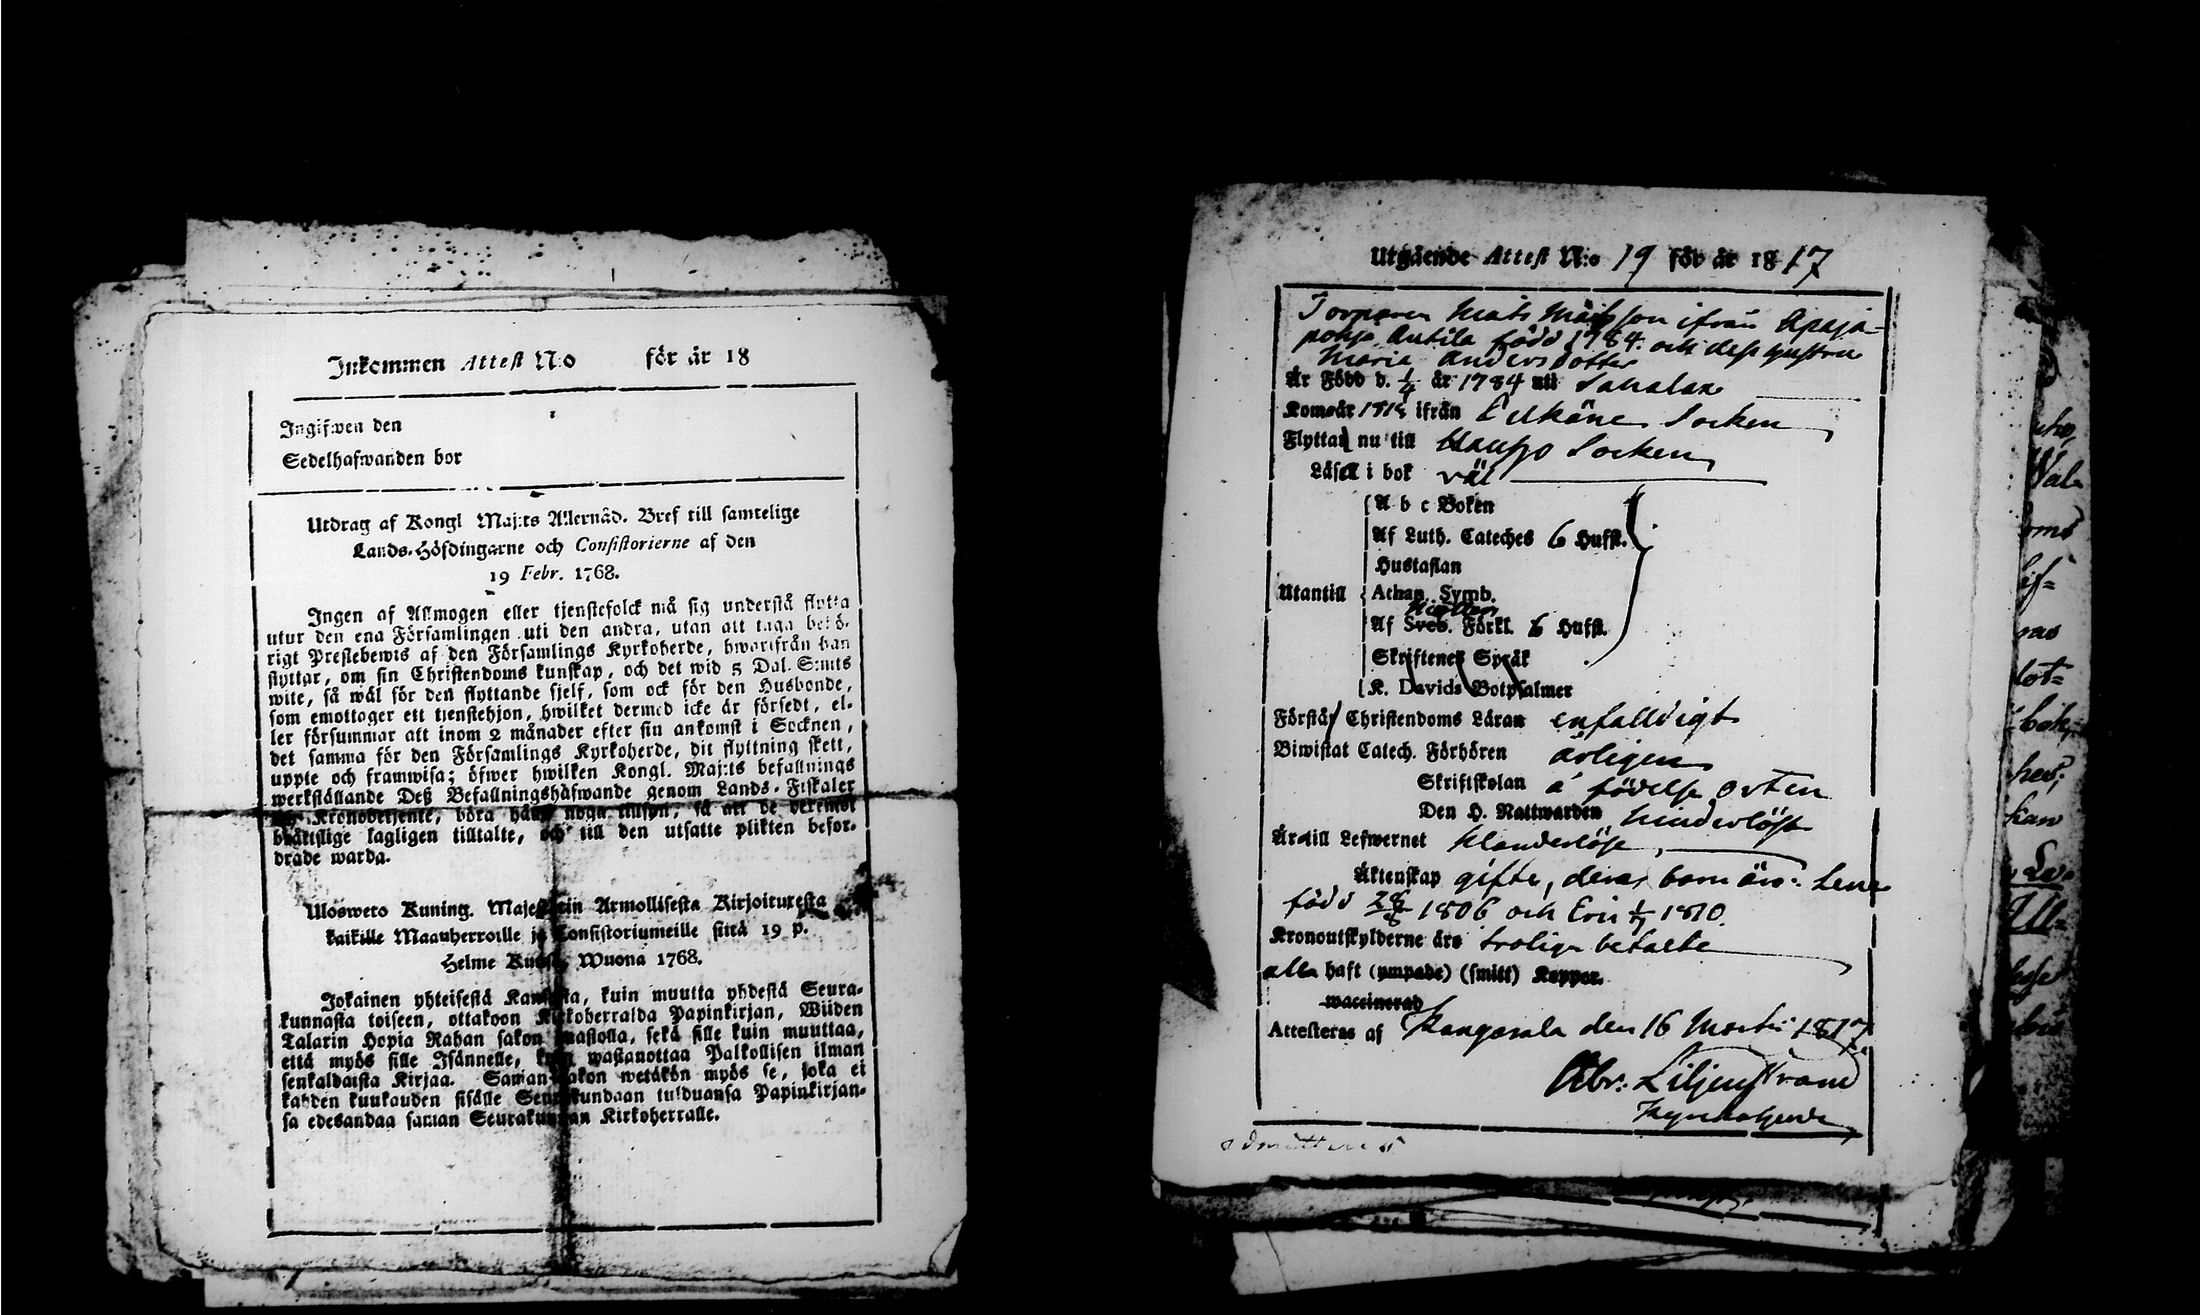 Inkommen Attest N:o för år 18
Ingifwen den
Sedelhafwanden bor
Utdrag af Kongl Maj:ts Allernåd. Bref till samtelige
Lands-Höfdingarne och Consistorierne af den
19 Febr. 1768.
Ingen af Allmogen eller tjenstefolck må sig understå flytta
utur den ena Församlingen uti den andra, utan att taga behö-
rigt Prestebewis af den Församlings Kyrkoherde, hworifrån han
flyttar, om sin Christendoms kunskap, och det wid 5 Dal. S:mts
wite, så wäl för den flyttande sjelf, som ock för den Husbonde,
som emottager ett tjenstehjon, hwilket dermed icke är försedt, el-
ler försummar att inom 2 månader efter sin ankomst i Socknen,
det samma för den Församlings Kyrkoherde, dit flyttning skett,
uppte och framwisa; öfwer hwilken Kongl. Maj:ts befallnings
werkställande Deß Befallningshafwande genom Lands-Fiskaler
Kronobetjente, böra hafwa noga tillsyn, så att de
lagligen tilltalte, och till den utsatte plikten befor-
drade warda.
Ulosweto Kuning. Majestetin Armollisesta Kirjoituxesta
kaikille Maanherroille ja Consistoriumeille siitä 19 p.
Helme Kuusa, Wuona 1768.
Jokainen yhteisestä Kansasta, kuin muutta yhdestä Seura-
kunnasta toiseen, ottakoon Kirkoherralda Papinkirjan, Wiiden
Talarin Hopia Rahan sakon uhastolla, sekä sille kuin muuttaa,
että myös sille Isännelle, kuin wastanottaa Palkollisen ilman
senkaldaista Kirjaa. Saman sakon wetäkön myös se, joka ei
kahden kuukauden sisälle Seurakundaan tulduansa Papinkirjan-
sa edesandaa saman Seurakunnan Kirkoherralle.
Utgående Attest N:o 19 för år 1817
Torparen Mats Matsson ifrån Apaja-
pohja Antila född 1784. och dess hustru
Maria Andersdotter
Är Född d. 1/4 år 1784 uti Sahalax
Kom år ifrån Eräjäne Socken
Flyttar nu till Socken
Läser i bok väl
A b c Boken
Af Luth. Cateches 6 Hufst.
Hustaflan
Utantill Athan. Symb.
Af Sveb. Förkl. 6 Hufst.
Skriftenes Språk
K. Davids Botpsalmer
Förstår Christendoms Läran enfalldigt
Biwistat Catech. Förhören årligen
Skriftskolan å födelse orten
Den H. Nattwarden hinderlöst
Äro till Lefwernet klanderlöse,
Äktenskap gifte, deras barn äro: Lena
född 28/8 1806 och Eric 1/7 1810.
Kronoutskylderne äro troligen betalte
alla haft (ympade) (smitt) Koppor.
waccinerad
Attesteras af Kangasala den 16 Martii 1817.
Abr: Liljenstrand
Kyrckoherde